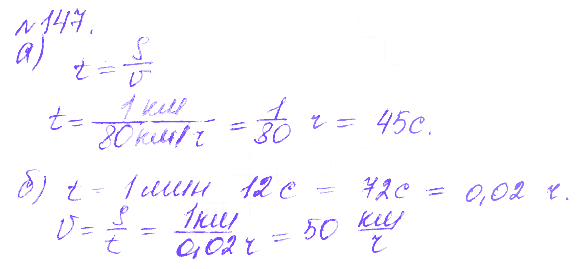 №147.
а)
t = S/v
t = 1км/80км/ч = 1/80 ч = 45с.
б) t = 1мин 12с = 72с = 0,02 ч.
v = S/t = 1км/0,02ч = 50 км/ч